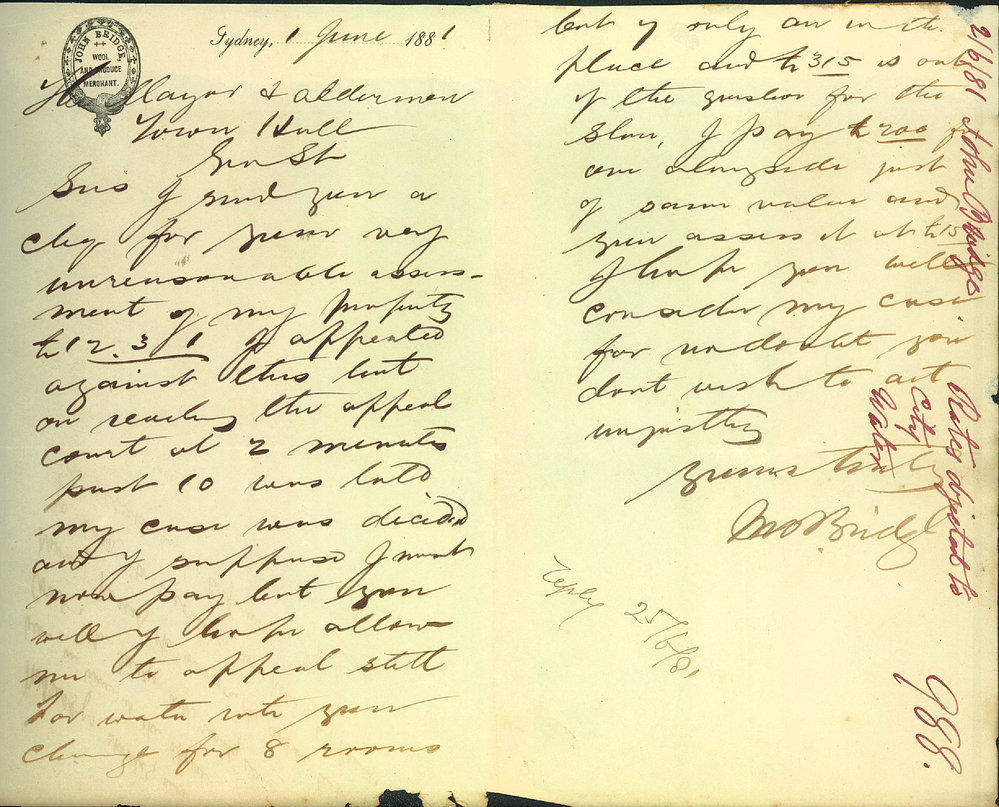 JOHN BRIDGE,
WOOL
AND PRODUCE
MERCHANT.
Sydney, 1 June 1881
The Mayor & aldermen
Town Hall
Geo St
Sirs I send you a
chq for your very
unreasonable assess-
ment of my property
£12.3/1 I appealed
against this but
on reaching the appeal
court at 2 minutes
past 10 was told
my case was decided
and I suppose I must
now pay but you
will I hope allow
me to appeal still
for water rate you
charge for 8 rooms
but if only an in the
place and £315 is out
of the question for the
Store, I pay £200 for
one alongside just
of same value and
you assess it at £15
I hope you will
consider my case
for undoubt you
dont wish to act
unjustly
yours truly
Jno Bridge
Reply
25/6/81
2/6/81 John Bridge
Rates objected to
City
Water
988.